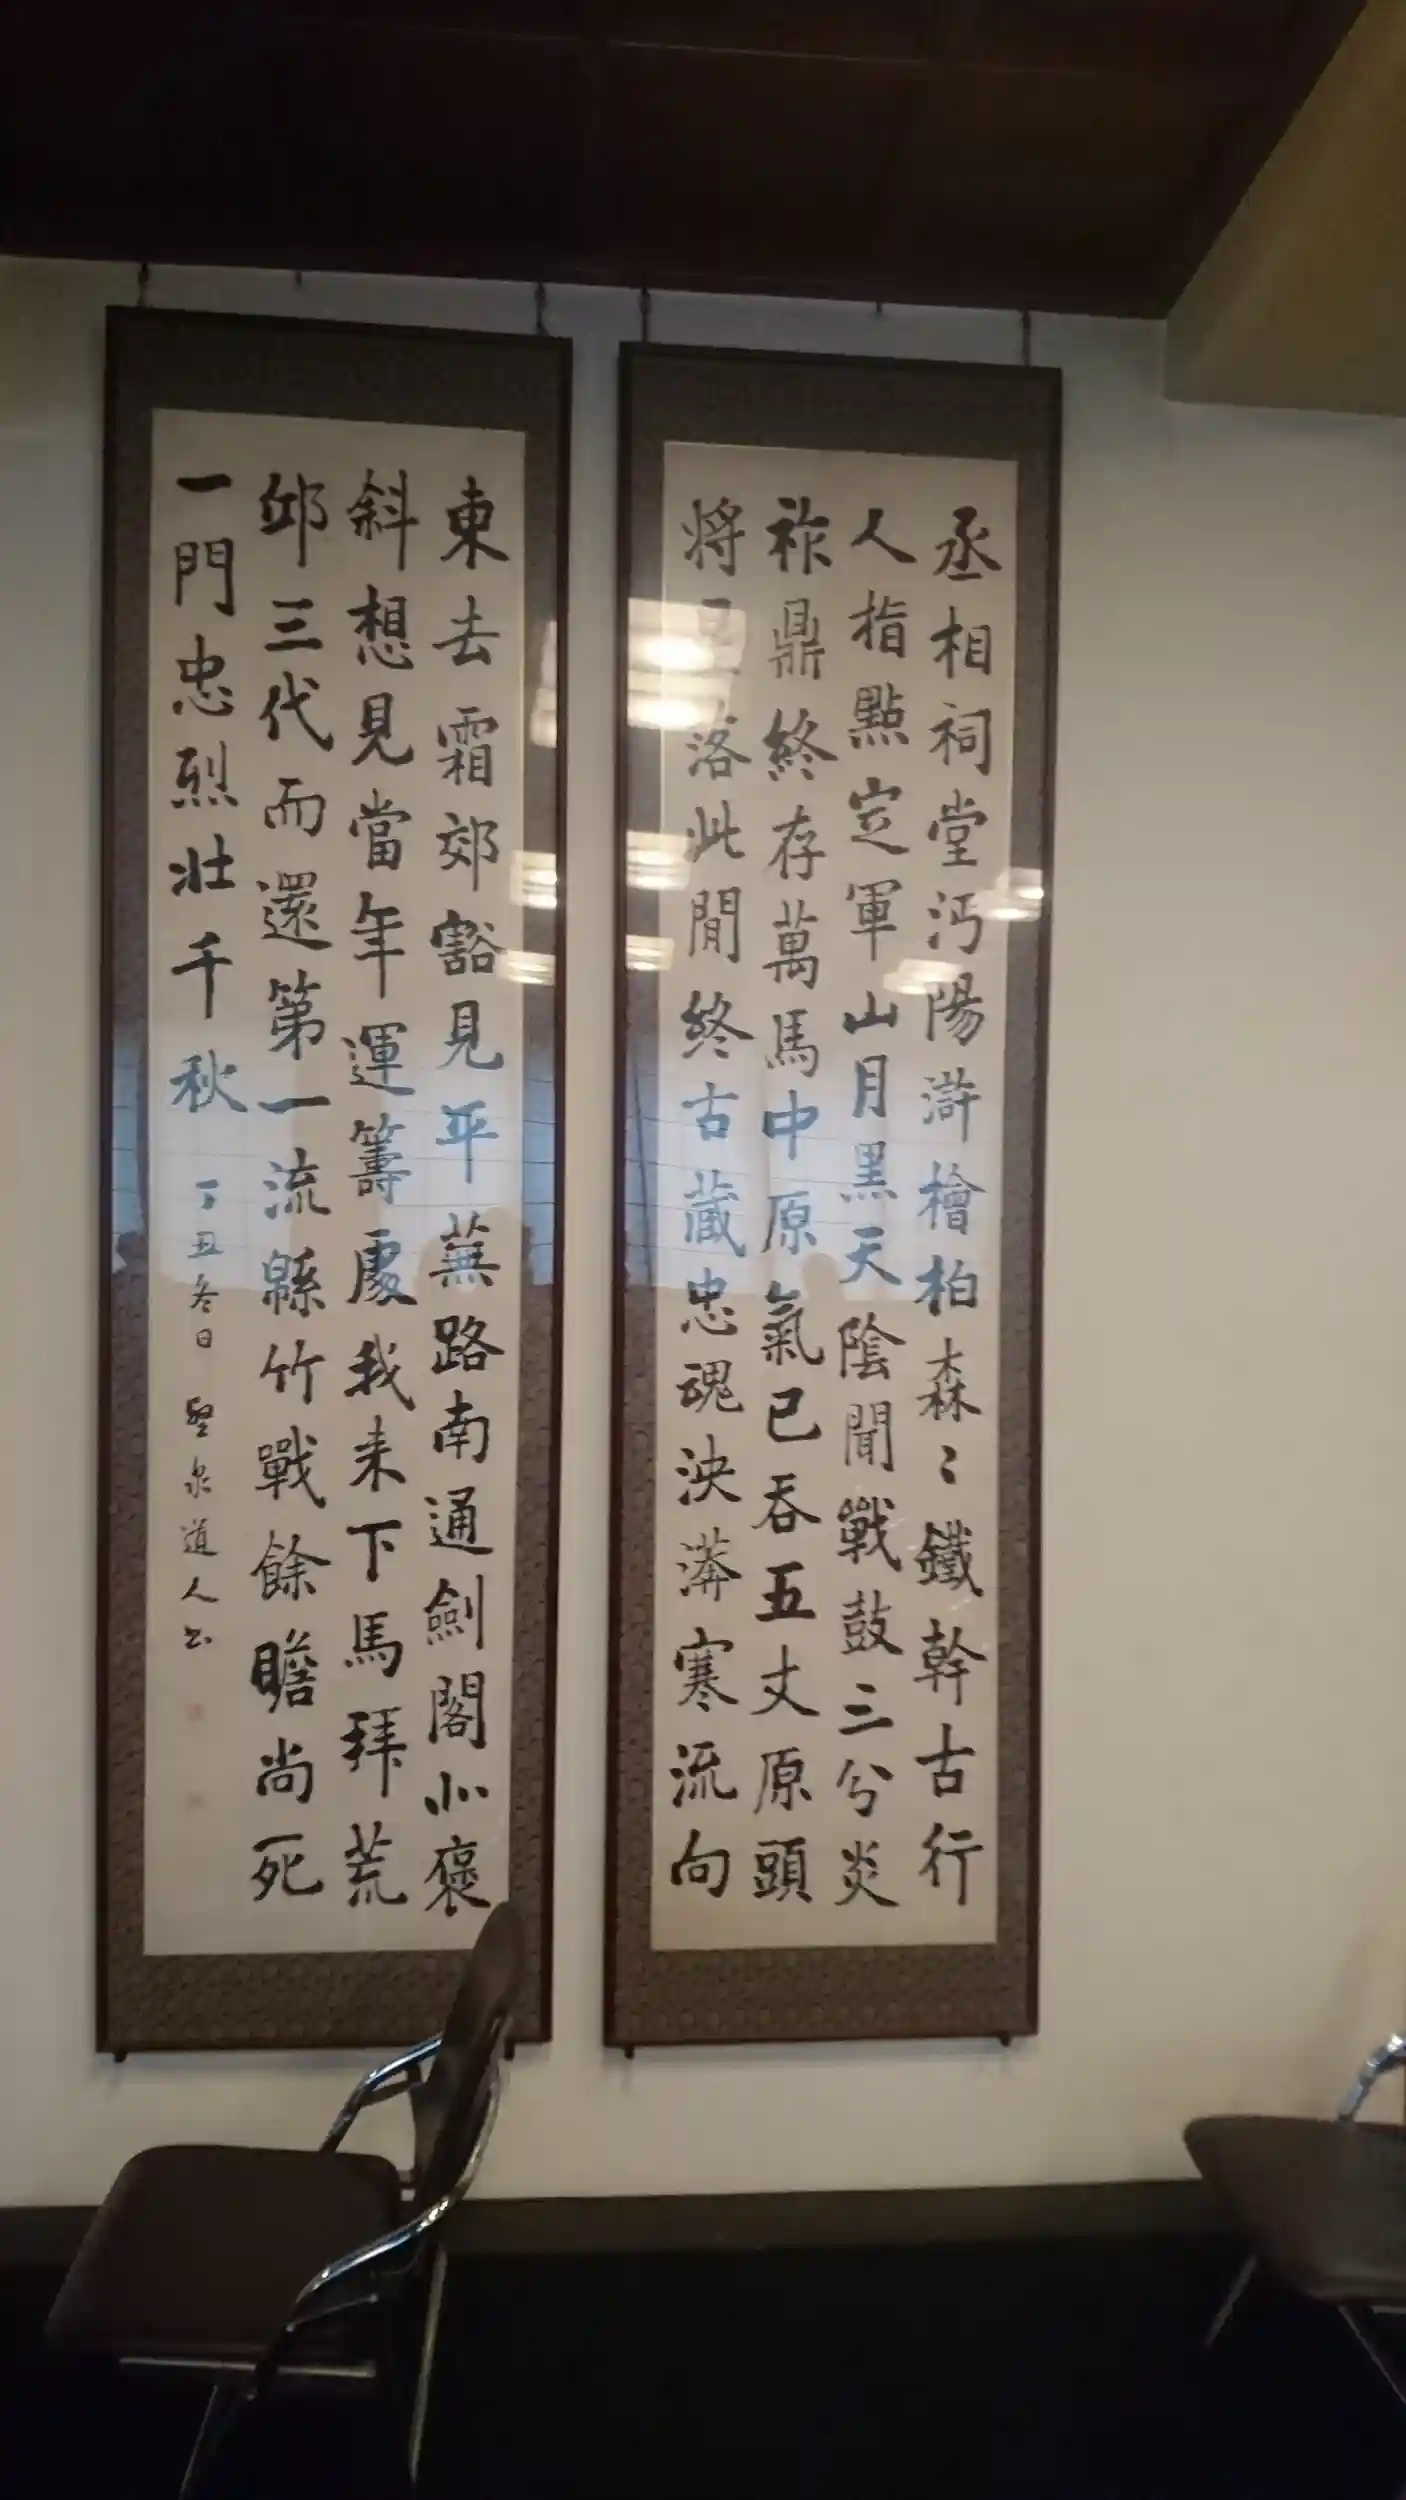 丞相祠堂沔陽滸檜柏森〻鐵幹古行
人指點定軍山月黑天陰聞戰鼓三分炎
祚鼎終存萬馬中原氣已吞五丈原頭
將星落此閒終古藏忠魂泱漭寒流向
東去霜郊豁見平蕪路南通劍閣北褒
斜想見當年運籌處我来下馬拜荒
邱三代而還第一流緜竹戰餘瞻尚死
一門忠烈壯千秋
丁丑冬日 堅泉道人書